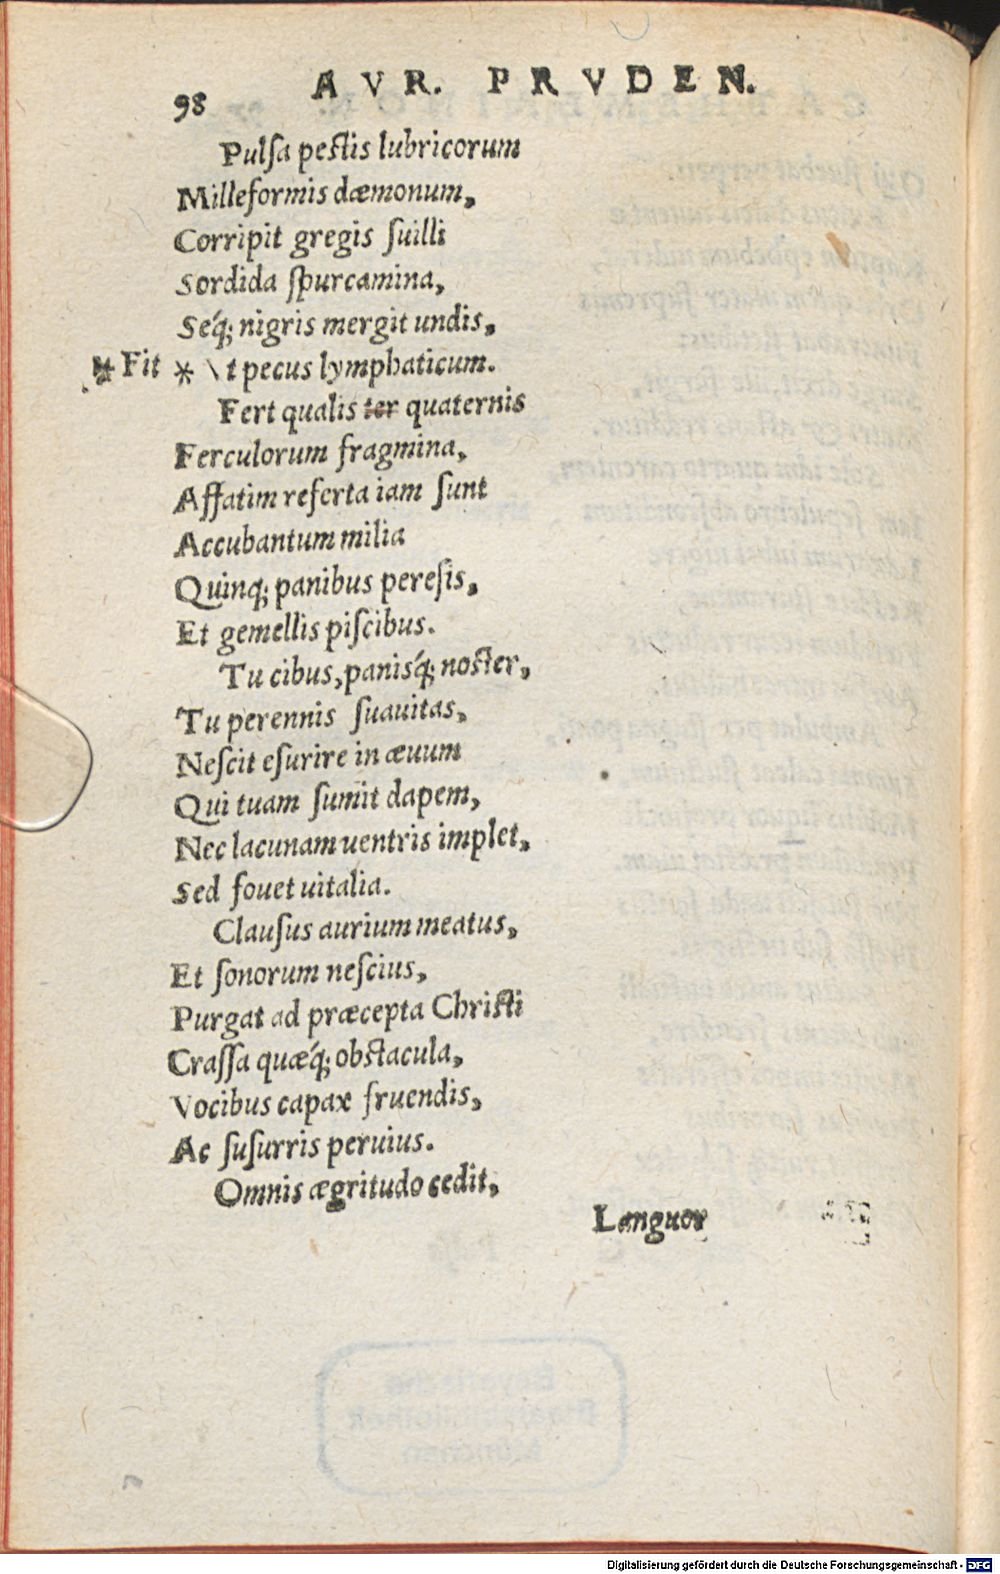 98 AVR. PRVDEN.
Pulſa peſtis lubricorum
Milleformis dæmonum,
Corripit gregis ſuilli
Sordida ſpurcamina,
Seq́; nigris mergit undis,
* Fit * \t pecus lymphaticum.
Fert qualis ter quaternis
Ferculorum fragmina,
Affatim referta iam ſunt
Accubantum milia
Quinq; panibus pereſis,
Et gemellis piſcibus.
Tu cibus, panisq́; noſter,
Tu perennis ſuauitas,
Neſcit eſurire in æuum
Qui tuam ſumit dapem,
Nec lacunam uentris implet,
Sed fouet uitalia.
Clauſus aurium meatus,
Et ſonorum neſcius,
Purgat ad præcepta Chriſti
Craſſa quæq́; obſtacula,
Vocibus capax fruendis,
Ac ſuſurris peruius.
Omnis ægritudo cedit,
Languor
Bayerische
Staatsbibliothek
München
Digitalisierung gefördert durch die Deutsche Forschungsgemeinschaft - DFG